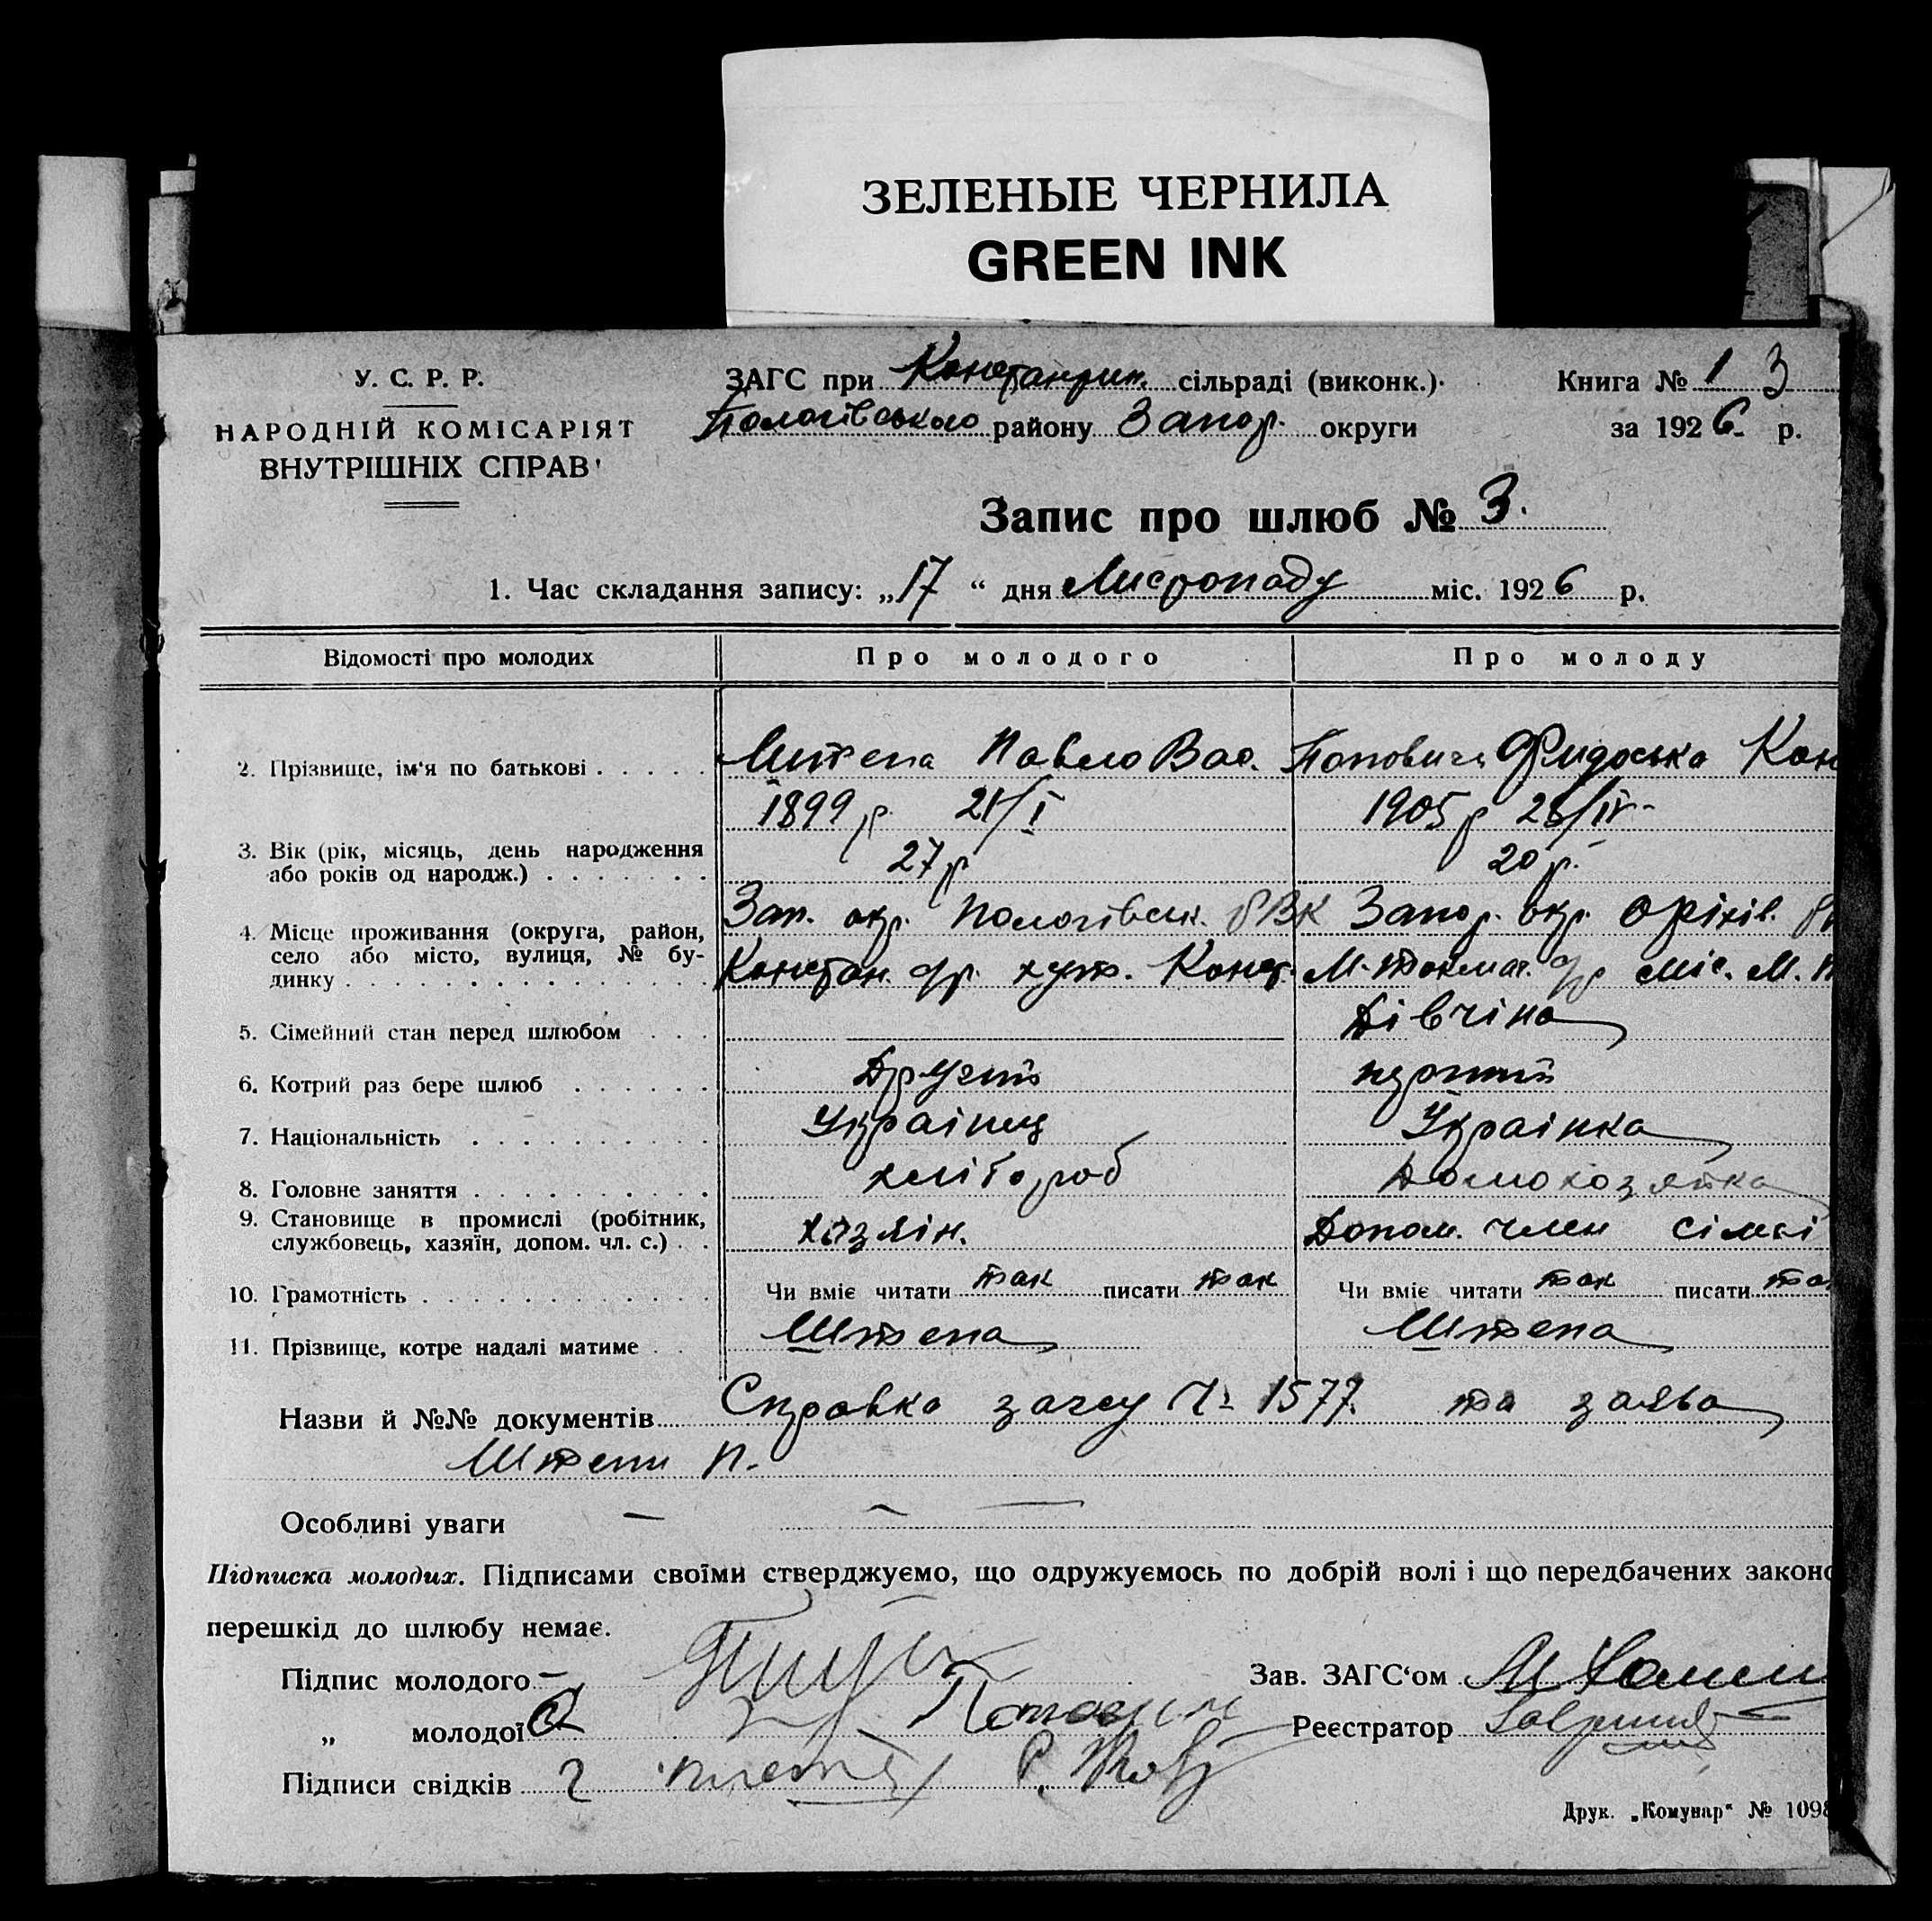 ЗЕЛЕНЫЕ ЧЕРНИЛА
GREEN INK
У. С. Р. Р.
НАРОДНІЙ КОМІСАРІЯТ
ВНУТРІШНІХ СПРАВ
ЗАГС при Констанрин. сільраді (виконк.)
Пологівського району Запор. округи
Книга № 1 3
за 1926 р.
Запис про шлюб № 3.
1. Час складання запису: „17“ дня Листопаду міс. 1926 р.
Відомості про молодих Про молодого Про молоду
2. Прізвище, ім‘я по батькові Штепа Павло Вас. Попович Фидоська Кон
1899 р. 21/I 1905 р 28/IV
3. Вік (рік, місяць, день народження
або років од народж.) 27 р 20 р.
4. Місце проживання (округа, район,
село або місто, вулиця, № бу-
динку
Зап. окр. Пологівськ. РВК Запор. окр. Оріхів.
Констан. с/р. хут. Конст. М. Токмач. с/р міс. М.
5. Сімейний стан перед шлюбом — Дівчіна
6. Котрий раз бере шлюб Другий перший
7. Національність Українец Українка
8. Головне заняття хлібороб Домохозяйка
9. Становище в промислі (робітник,
службовець, хазяїн, допом. чл. с.) Хазяін. Допом. член сімьі
10. Грамотність Чи вміє читати так писати так Чи вміє читати так писати так
11. Прізвище, котре надалі матиме Штепа Штепа
Назви й №№ документів Справка загсу Ч 1577. та заява
Штепи П.
Особливі уваги — —
Підписка молодих. Підписами своїми стверджуємо, що одружуємось по добрій волі і що передбачених законо
перешкід до шлюбу немає.
Підпис молодого
„ молодої Попович
Підписи свідків
Зав. ЗАГС‘ом
Реєстратор
Друк. „Комунар“ № 1098